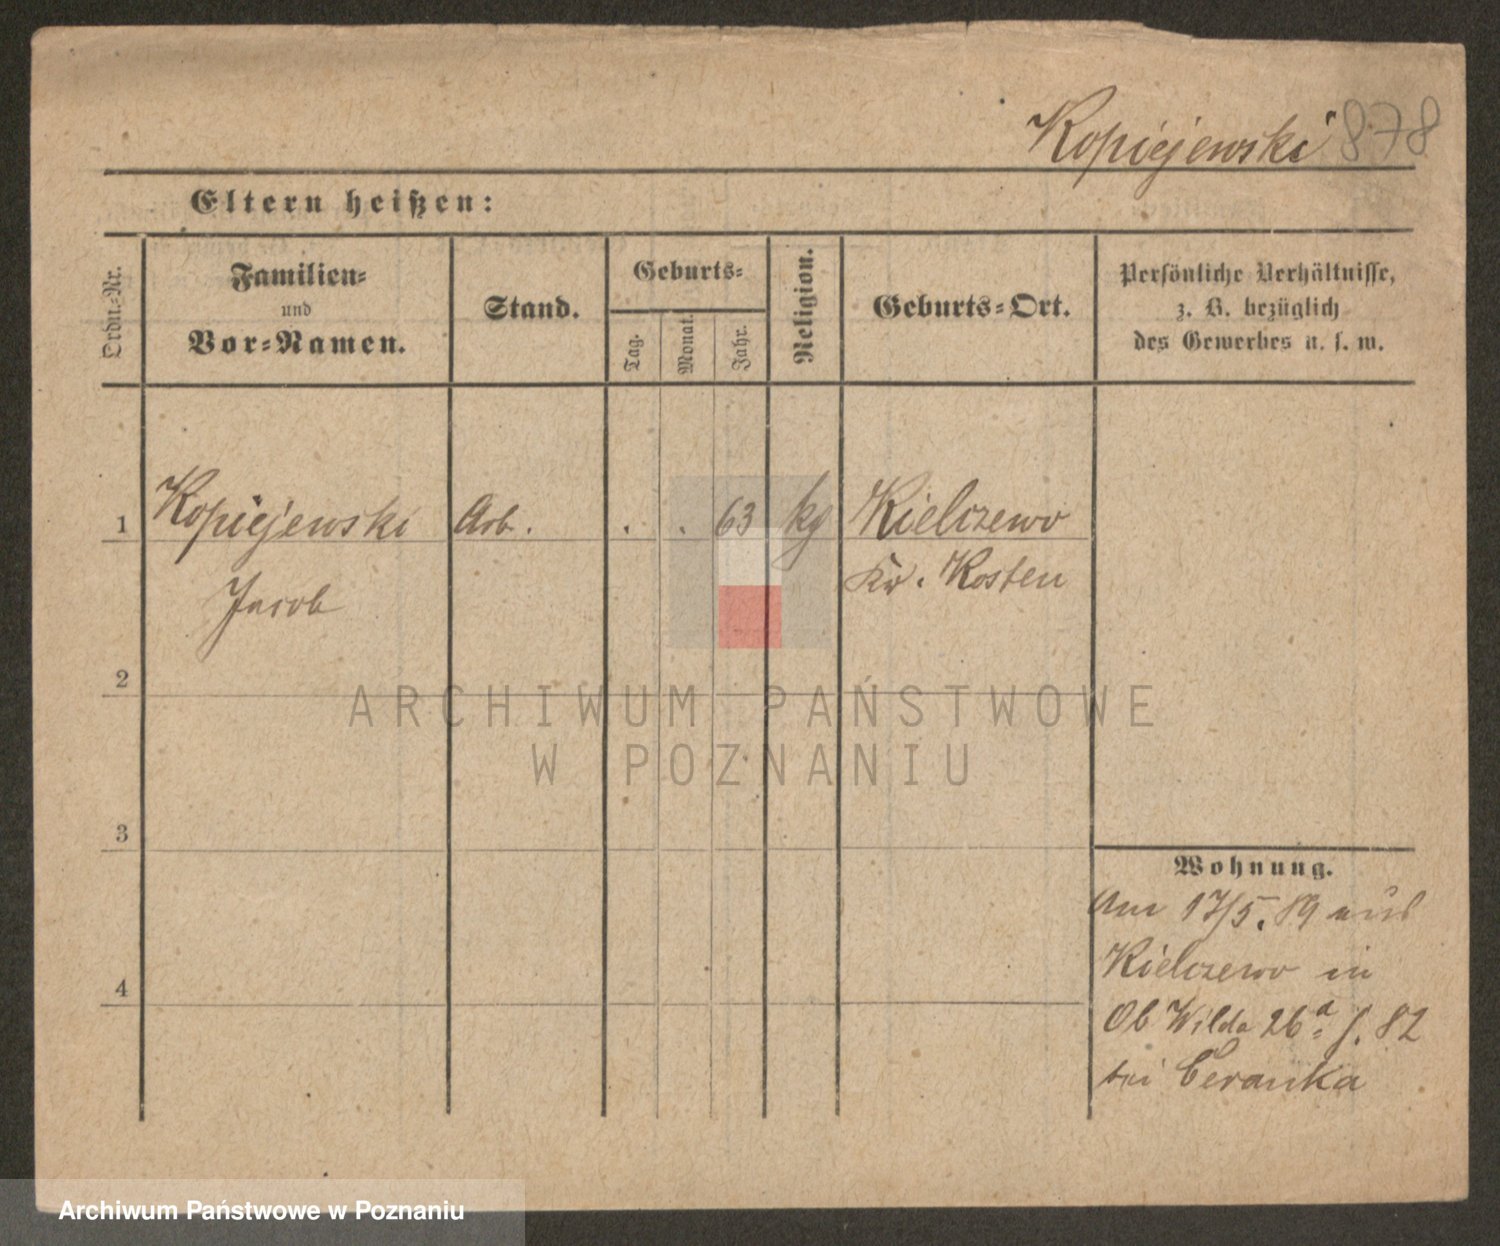 Kopiejewski 878
Eltern heißen:
Ordn.-Nr.
Familien-
und
Vor-Namen.
Stand.
Geburts-
Tag.
Monat.
Jahr.
Religion.
Geburts-Ort.
Persönliche Verhältnisse,
z. B. bezüglich
des Gewerbes u. s. w.
1 Kopiejewski Arb. . . 63 kg Kielczewo
Jacob
Kr. Kosten
2
3
4
Wohnung.
Am 17/5. 89 aus
Kielczewo in
Ob Wilda 26a f. 82
bei Ceranka
ARCHIWUM PAŃSTWOWE
W POZNANIU
Archiwum Państwowe w Poznaniu